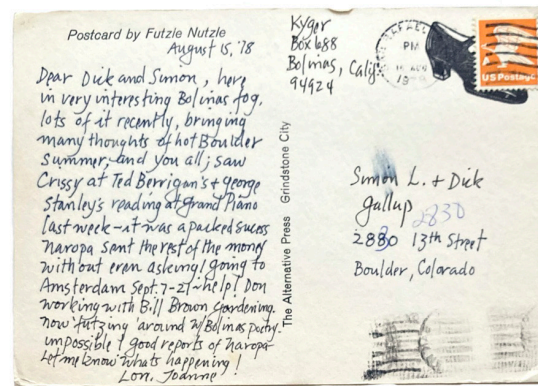 Postcard by Futzie Nutzle
August 15, '78
Dear Dick and Simon, here
in very interesting Bolinas fog.
lots of it recently, bringing
many thoughts of hot Boulder
Summer, and you all; saw
Crissy at Ted Berrigan's + george
Stanley's reading at Grand Piano
last week - it was a packed sucess
Naropa sent the rest of the money
without even asking! going to
Amsterdam Sept. 7-27 - help! Don
working with Bill Brown gardening.
now 'futzing' around w/Bolinas poetry.
impossible! good reports of Naropa.
Let me know what's happening!
Love, Joanne
The Alternative Press Grindstone City
Kyger
Box 688
Bolinas, Calif
94924
RAFAEL
PM
AUG
US Postage
Simon L. + Dick
gallup
2830
2880 13th Street
Boulder, Colorado